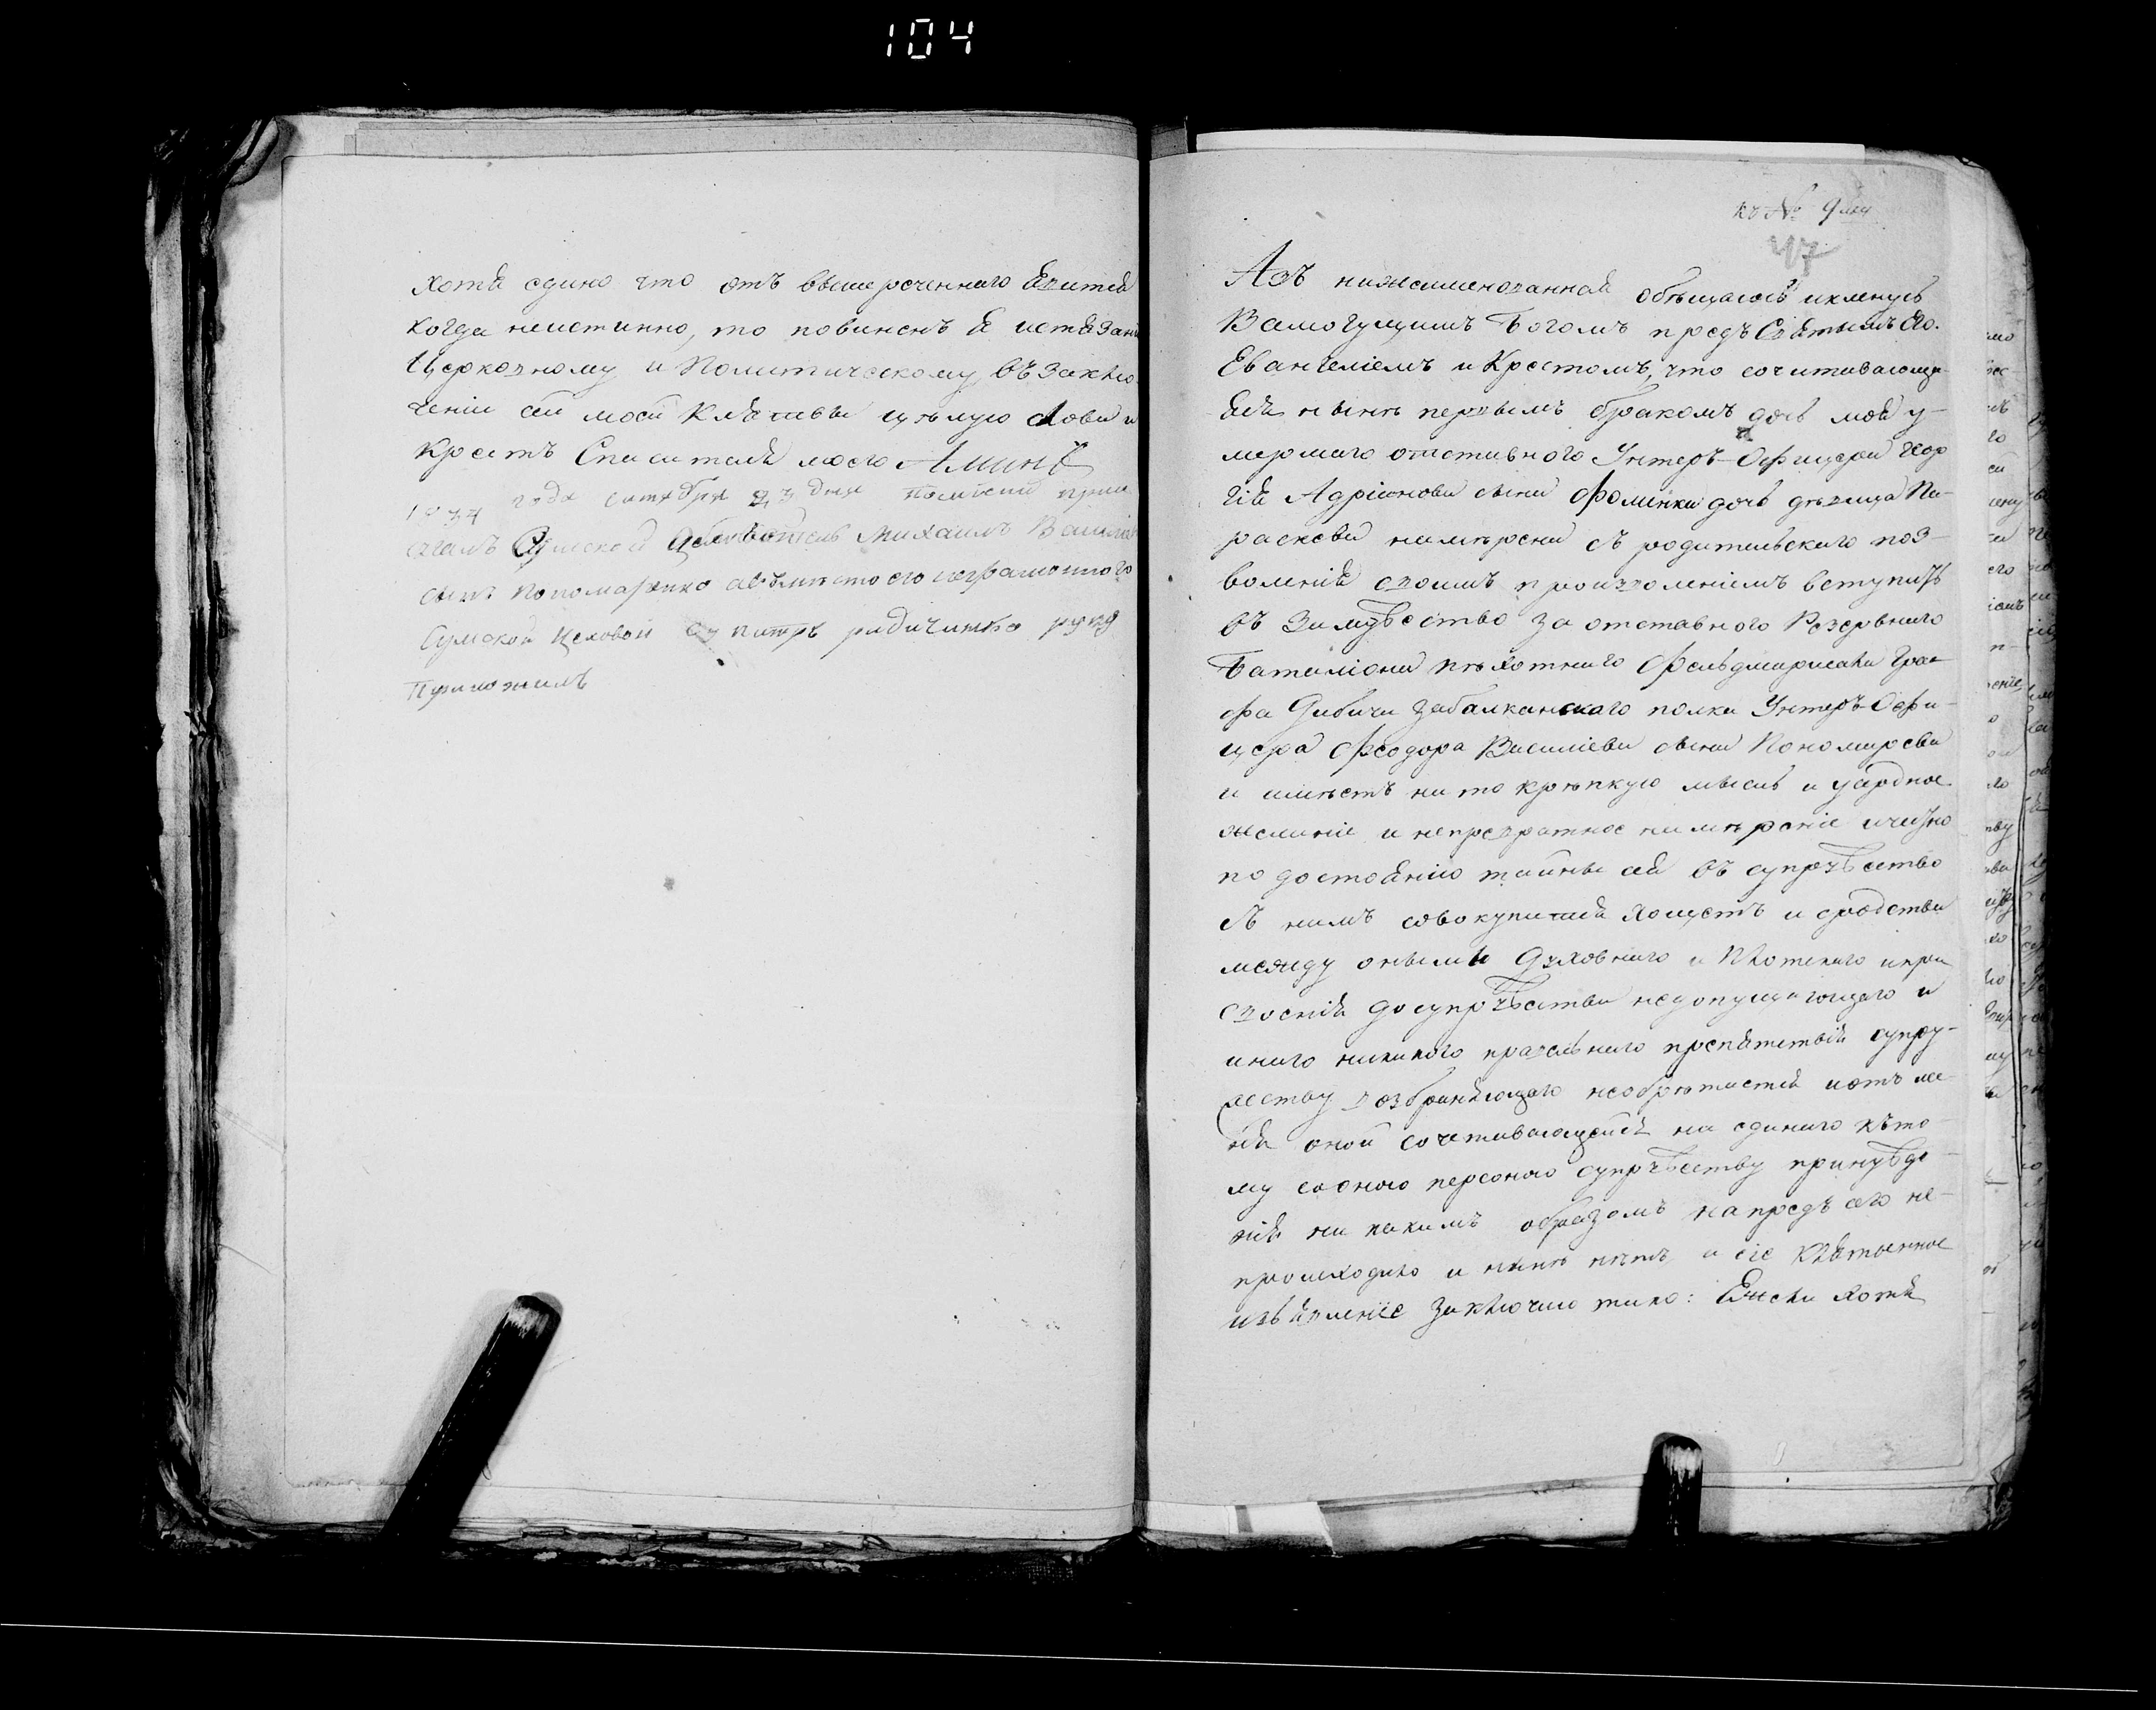 104
хотя едино что отъ вышереченнаго явится
когда неистинно, то повиненъ я истязанію
Церковному и Политическому, въ заклю-
ченіи сей моей клятвы цѣлую слова и
крестъ Спасителя моего Аминь
года сентября 23 дня
Сумской обыватель Михаилъ Василіевъ
сынъ Пономаренко авъмѣсто его неграмотного
Сумской цеховой Петръ руку
Приложилъ
къ № 9му
47
Азъ нижеименованный обѣщаюсь и кленусь
Всемогущимъ Богомъ предъ Святымъ Его
Евангеліемъ и Крестомъ, что сочитавающа-
яся нынѣ первымъ бракомъ дочь моя у-
мершаго отставного Унтеръ-Офицера Геор
гія Адріанова сына Фоменка дочь дѣвица Па-
раскева намѣрена съ родительскаго поз-
воленія своимъ произволеніемъ вступить
въ замужество за отставного Резервнаго
Баталіона пѣхотнаго Фельдмаршала Гра-
фа Дибича Забалканскаго полка Унтеръ-Офи-
цера Феодора Василіева сына Пономарева
и имѣетъ на то крѣпкую мысль и усердное
желаніе и непревратное намѣреніе и чисто
по достоянію тайны сей въ супружество
съ нимъ совокупится хощетъ и сродства
между оными Духовнаго и Плотскаго и при
своенія до супружества недопущающаго и
инаго никакого правильнаго препятствія супру-
жеству возбраняющаго необрѣтается и отъ ме-
ня оной сочетавающейся ни единаго къ то-
му со оною персоною супружеству принужде-
нія ни какимъ образомъ напредъ сего не-
происходило и нынѣ нѣтъ и сіе клятвенное
изъявленіе заключаю тако: Ежели хотя